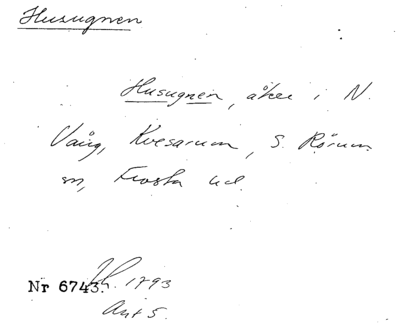 Husugnen
Husugnen, åker i N.
Vång, Kvesarum, S. Rörum
sn, Frosta hd.
Nr 6743. 1793
Akt 5.